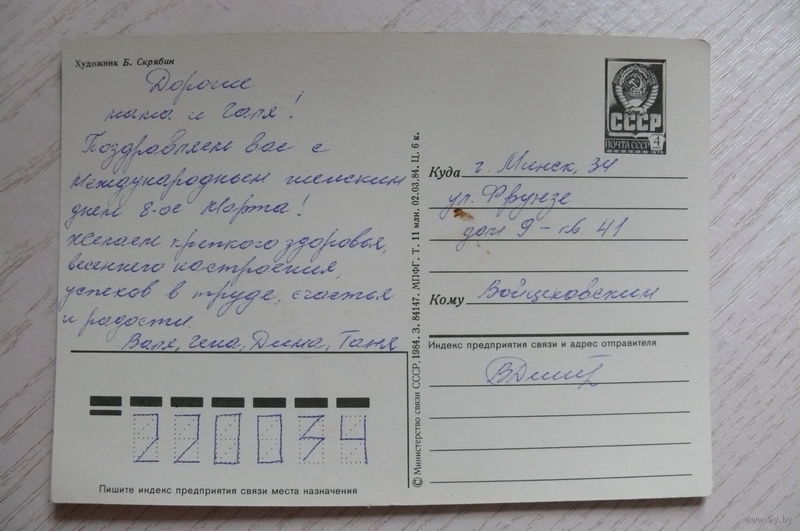 Художник Б. Скрябин
Дорогие
мама и Галя!
Поздравляем вас с
Международным женским
днем 8-ое Марта!
Желаем крепкого здоровья,
весеннего настроения,
успехов в труде, счастья
и радости.
Валя, Гена, Дима, Таня
220034
Пишите индекс предприятия связи места назначения
© Министерство связи СССР, 1984. З. 84147. МПФГ. Т. 11 млн. 02.03.84. Ц. 6 к.
СССР
ПОЧТА СССР 4
Куда г. Минск, 34
ул. Фрунзе
дом 9 - кв 41
Кому Войцеховским
Индекс предприятия связи и адрес отправителя
www.ay.by